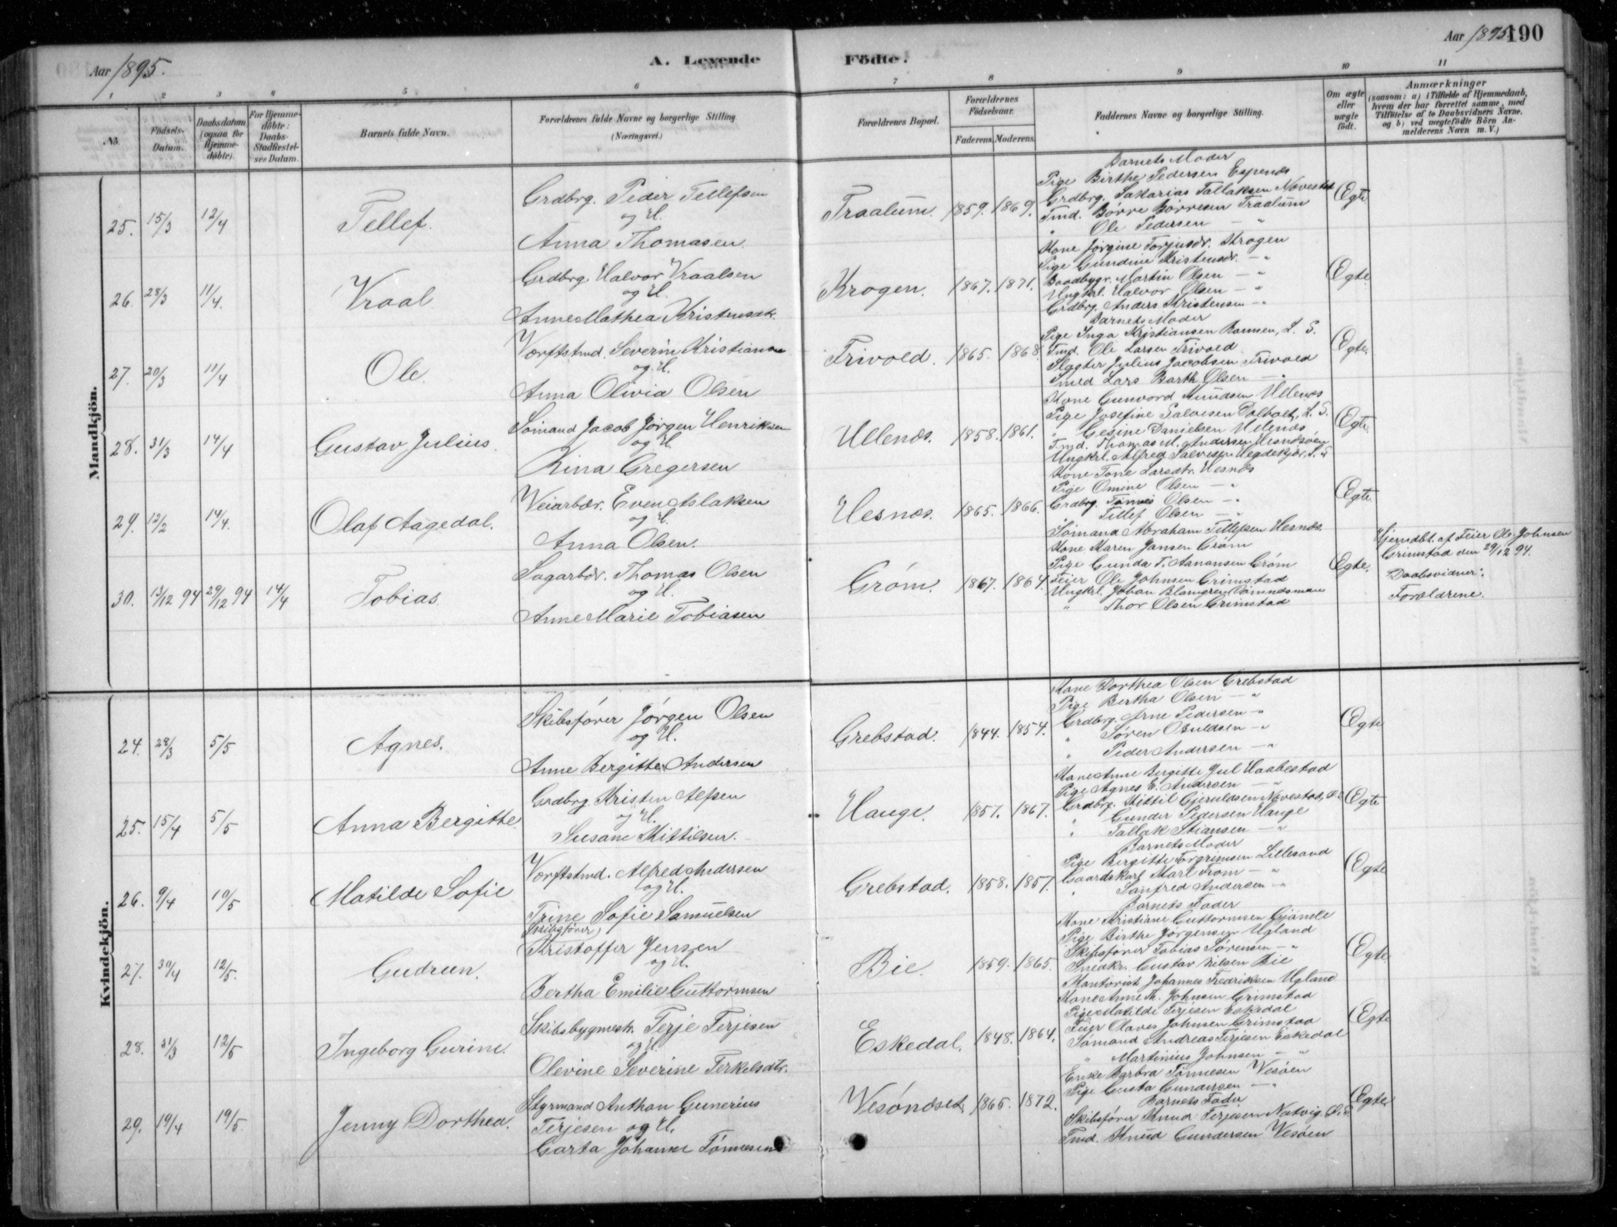 Aar 1895.
A. Levende Födte.
Aar 1895 190
1 2 3 4 5 6 7 8 9 10 11
№ Födsels-Datum. Daabsdatum (ogsaa for Hjemmedøbte). For Hjemmedøbte: Daabs-Stadfæstelses Datum. Barnets fulde Navn. Forældrenes fulde Navne og borgerlige Stilling (Næringsvei.) Forældrenes Bopæl. Forældrenes Födselsaar. Faderens. Moderens. Faddernes Navne og borgerlige Stilling. Om ægte eller uægte født. Anmærkninger (saasom: a) i Tilfælde af Hjemmedaab, hvem der har forrettet samme, med Tilföielse af to Daabsvidners Navne. og b) ved uægtefödte Börn Anmelderens Navn m. V.)
Mandkjön.
25. 15/3 12/4 Tellef. Grdbrg. Peder Tellefsen
og H.
Anna Thomasen
Traalum. 1859. 1869.
Barnets Moder
Pige Birthe Pedersen Espenes
Grdbrg. Sakarias Tallaksen Nævestad
Tmd. Börre Börresen Traalum
" Ole Pedersen — "
Ægte
26. 28/3 11/4. Vraal Grdbrg. Halvor Vraalsen
og H.
Anne Mathea Kristensdt.
Krogen. 1867. 1871.
Kone Jørgine Torjusdr. Krogen
Pige Gundine Kristensdr. — "
Baadbygr. Martin Olsen — "
Ungkrl. Halvor Olsen — "
Grdbrg. Anders Kristensen — "
Ægte
27. 20/3 11/4 Ole. Værftstmd. Severin Kristiansen
og H.
Anna Olivia Olsen
Frivold. 1865. 1868.
Barnets Moder
Pige Inga Kristiansen
Tmd. Ole Larsen Frivold
Slagter Julius Jacobsen Frivold
Smed Lars Barth Olsen
Ægte
28. 31/3 14/4 Gustav Julius. Sömand Jacob Jørgen Henriksen
og H.
Rina Gregersen
Ullenæs. 1858. 1861.
Kone Gunvord Knudsen Ullenæs
Pige Josefine Salvesen Dolholt, L. S.
" Gesine Danielsen Ullenæs
Tmd. Thomas M. Andersen Hesnesöen
Ungkrl. Alfred Salvesen
Ægte
29. 12/2 14/4. Olaf Aagedal. Veiarbdr. Even Aslaksen
og H.
Anna Olsen.
Hesnæs. 1865. 1866.
Kone Tone Larsdtr. Hesnæs
Pige Omine Olsen — "
Grdbrg. Tönnes Olsen — "
" Tellef Olsen — "
Sømand Abraham Tellefsen Hesnæs
Ægte
30. 13/12 94 29/12 94 14/4 Tobias Sagarbdr. Thomas Olsen
og H.
Anne Marie Tobiasen
Grøm. 1867. 1864.
Kone Karen Jansen Grøm
Pige Gunda T. Aanonsen Grøm
Feier Ole Johnsen Grimstad
Ungkrl. Johan Blamgren
" Thor Olsen Grimstad
Ægte.
Hjemdbt. af Feier Ole Johnsen
Grimstad den 29/12 94.
Daabsvidner:
Forældrene.
Kvindekjön.
24. 28/3 5/5 Agnes. Skibsfører Jørgen Olsen
og H.
Anne Bergitte Andersen
Grebstad. 1844. 1854.
Kone Dorthea Olsen Grebstad
Pige Bertha Olsen — "
Grdbrg. Arne Pedersen — "
" Søren Osuldsen — "
" Peder Andersen — "
Ægte
25. 15/4 5/5 Anna Bergitte Grdbrg. Kristen Alfsen
og H.
Susane Kittilsen.
Hauge. 1857. 1867.
Kone Anne Bergitte Juel Haabestad
Pige Agnes E. Andersen — "
Grdbrg. Kittil Gjeruldsen Nævestad,
" Gunder Pedersen Hauge
" Tallak Stiansen — "
Ægte
26. 9/4 19/5 Matilde Sofie Værftstmd. Alfred Andersen
og H.
Trine Sofie Samuelsen
Grebstad. 1858. 1857.
Barnets Moder
Pige Bergitte Torgrimsen Lillesand
Gaardskarl Karl Trom — "
" Sanfred Andersen — "
Barnets Fader
Ægte
27. 30/4 12/5. Gudrun. (Skibsfører)
Kristoffer Jensen
og H.
Bertha Emilie Guttormsen
Bie. 1859. 1865.
Kone Kristiane Guttormsen Gjömle
Pige Birthe Jørgensen Ugland
Skibsfører Tobias Sørensen — "
Snedkr. Gustav Nilsen Bie
Kontorist Johannes Fredriksen Ugland
Ægte
28. 31/3 12/5 Ingeborg Gurine Skibsbygmestr. Terje Terjesen
og H.
Olevine Severine Terkelsdtr.
Eskedal. 1848. 1864.
Kone Anne Th. Johnsen Grimstad
Pige Matilde Terjesen Eskedal
Feier Olaves Johnsen Grimstad
Sømand Andreas Terjesen Eskedal
" Martinius Johnsen — "
Ægte
29. 19/4 19/5 Jenny Dorthea. Styrmand Anthon Gunerius
Terjesen og H.
Garta Johanne Tønnesen
Vesöndset. 1865. 1872.
Enke Barbra Tønnesen Vesöen
Pige Gusta Gundersen — "
Barnets Fader
Skibsfører Knud Terjesen Natvig
Tmd. Knud Gundersen Vesöen
Ægte.